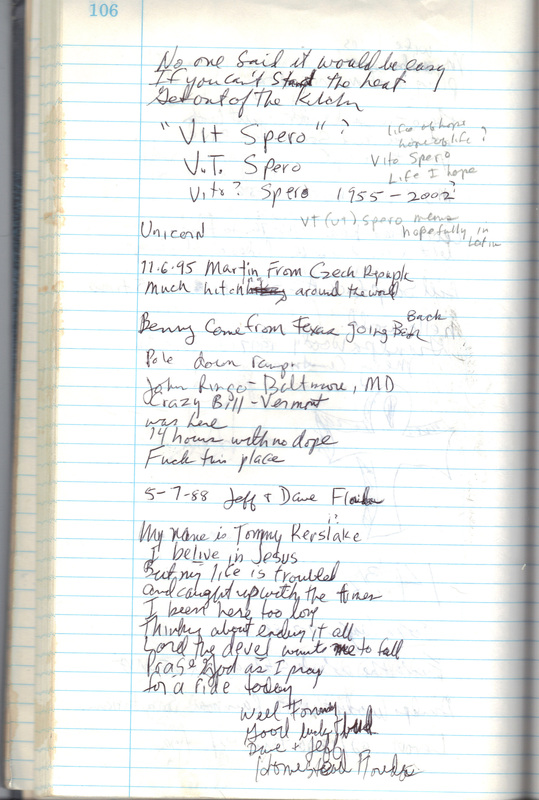 106
No one said it would be easy
If you can't stand the heat
Get out of the kitchen
"Vit Spero" ?
life of hope
hope of life ?
V.T. Spero
Vito Spero
Life I hope
Vito? Spero 1955-2002?
VT (UT) Spero means
hopefully in
Latin
Unicorn
11.6.95 Martin From Czech Republik
much hitch around the world
Benny Come from Texas going Back
Pole down ramp
John Ringo - Baltimore, MD
Crazy Bill - Vermont
was here
14 hours with no dope
Fuck this place
5-7-88 Jeff & Dave Florida
My name is Tommy Kerslake
I belive in Jesus
But my life is troubled
and caught up with the times
I been here too long
Thinking about ending it all
Lord the devel wants me to fall
Prase God as I pray
for a ride today
Well Tommy
Good luck
Dave + Jeff
Homestead Florida